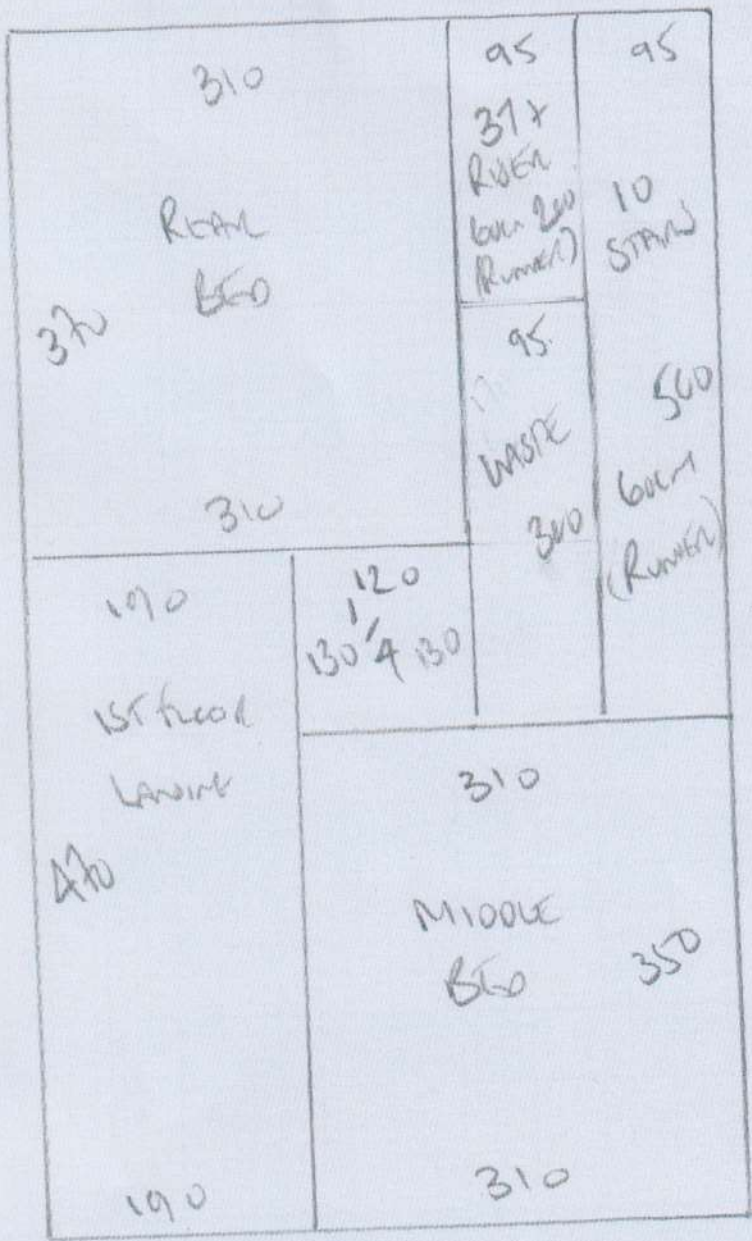 310
REAR
BED
370
310
95
RISER
60cm 200
(RUNNER)
95
10
STAIRS
560
60cm
(RUNNER)
95
WASTE
300
120
130
130
190
1ST FLOOR
LANDING
470
190
310
MIDDLE
BED
350
310